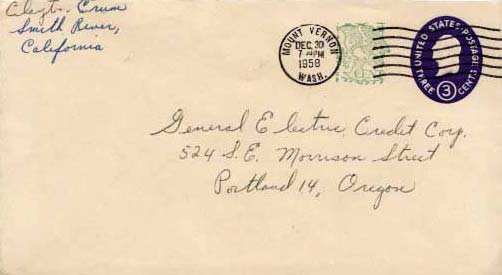 Clayton Crum
Smith River,
California
MOUNT VERNON
DEC 30
7 PM
1958
WASH.
UNITED STATES POSTAGE
THREE CENTS
3
General Electric Credit Corp.
524 S.E. Morrison Street
Portland 14, Oregon